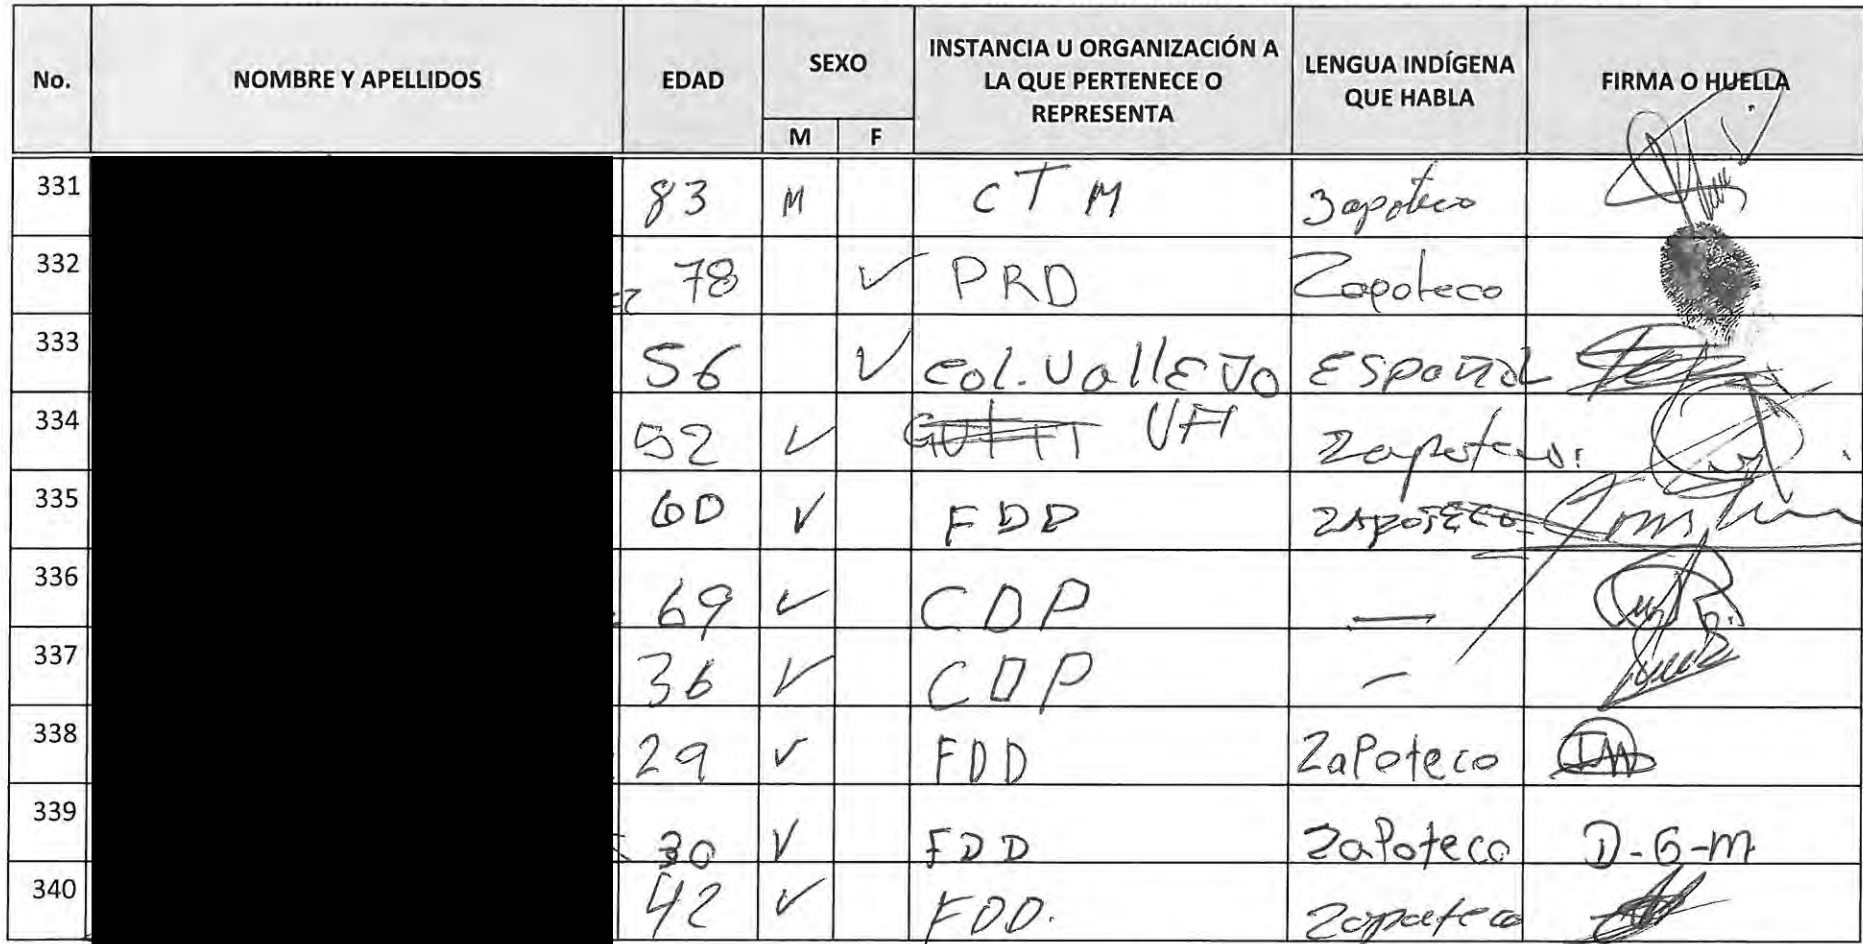 No. NOMBRE Y APELLIDOS EDAD SEXO M F INSTANCIA U ORGANIZACIÓN A LA QUE PERTENECE O REPRESENTA LENGUA INDÍGENA QUE HABLA FIRMA O HUELLA
331 83 M CTM Zapoteco
332 78 ✓ PRD Zapoteco
333 56 ✓ Col. VallEJO ESpañol
334 52 ✓ UFI Zapoteco.
335 60 ✓ FDD ZAPOTECO
336 69 ✓ CDP —
337 36 ✓ CDP —
338 29 ✓ FDD ZaPoteco
339 30 ✓ FDD ZaPoteco D-G-m
340 42 ✓ FDD. Zapoteco